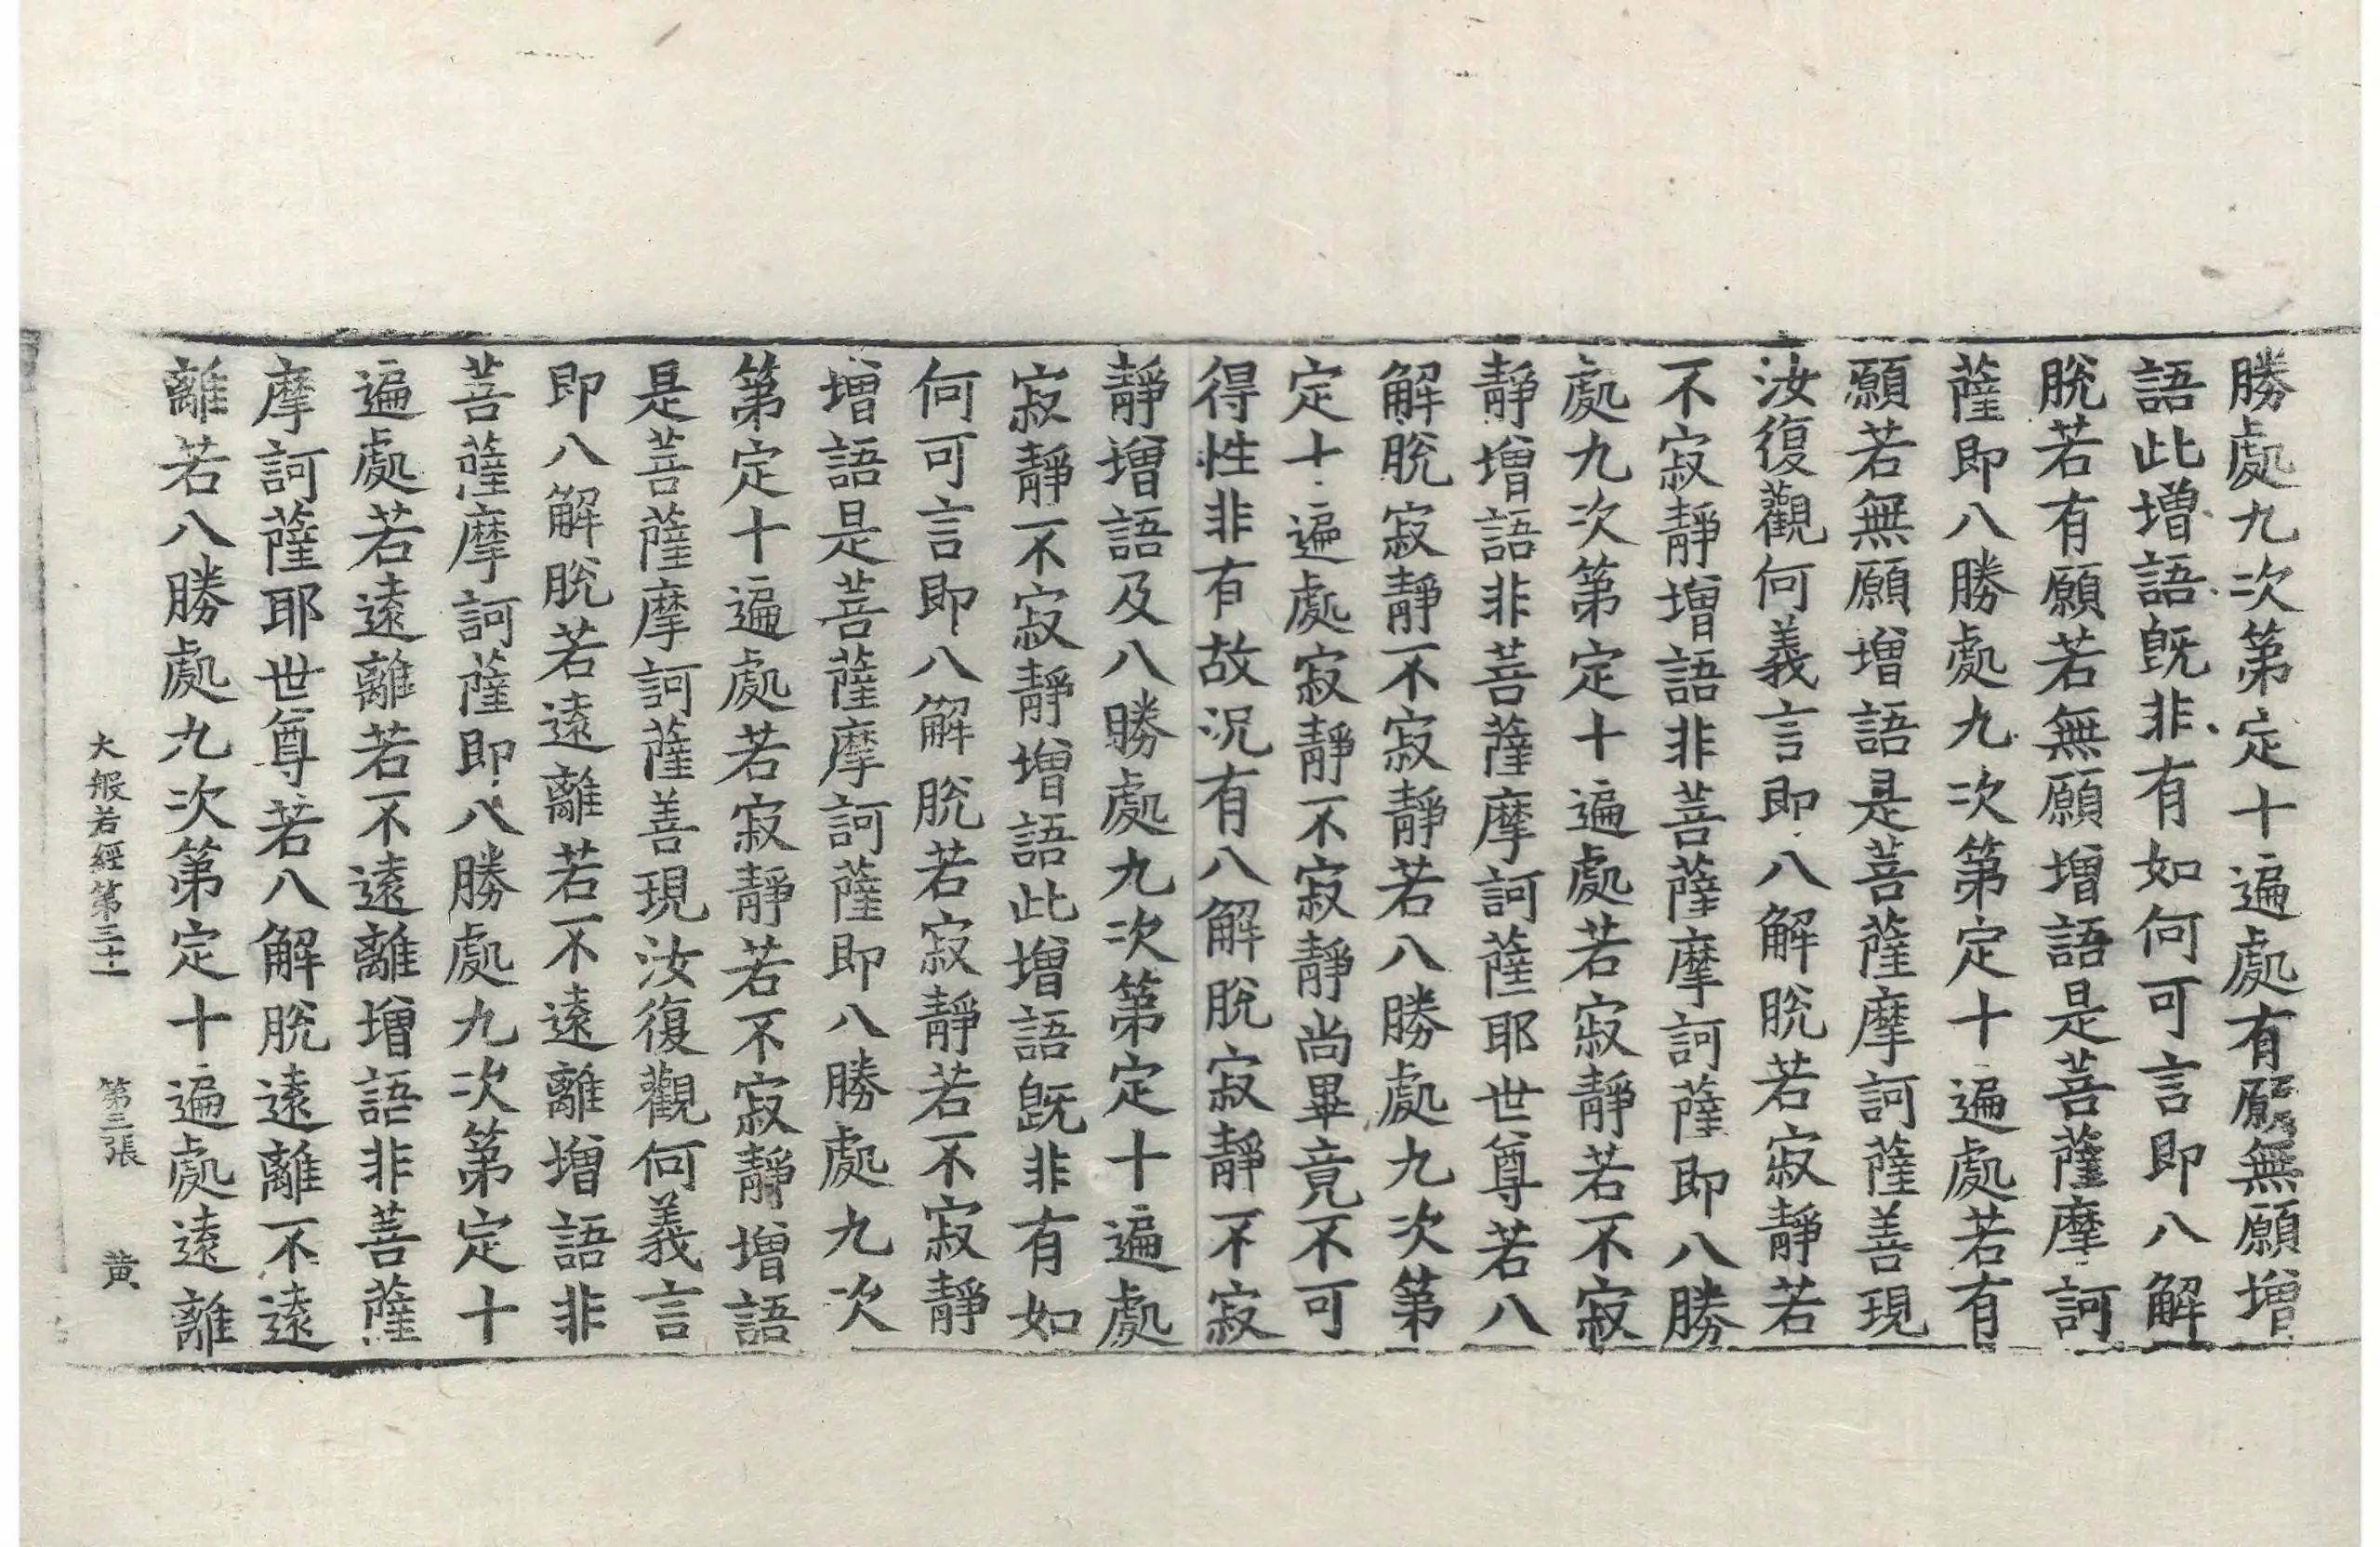 勝處九次第定十遍處有願無願增
語此增語旣非有如何可言即八解
脫若有願若無願增語是菩薩摩訶
薩即八勝處九次第定十遍處若有
願若無願增語是菩薩摩訶薩善現
汝復觀何義言即八解脫若寂靜若
不寂靜增語非菩薩摩訶薩即八勝
處九次第定十遍處若寂靜若不寂
靜增語非菩薩摩訶薩耶世尊若八
解脫寂靜不寂靜若八勝處九次第
定十遍處寂靜不寂靜尚畢竟不可
得性非有故況有八解脫寂靜不寂
靜增語及八勝處九次第定十遍處
寂靜不寂靜增語此增語旣非有如
何可言即八解脫若寂靜若不寂靜
增語是菩薩摩訶薩即八勝處九次
第定十遍處若寂靜若不寂靜增語
是菩薩摩訶薩善現汝復觀何義言
即八解脫若遠離若不遠離增語非
菩薩摩訶薩即八勝處九次第定十
遍處若遠離若不遠離增語非菩薩
摩訶薩耶世尊若八解脫遠離不遠
離若八勝處九次第定十遍處遠離
大般若經第三十一 第三張 黃